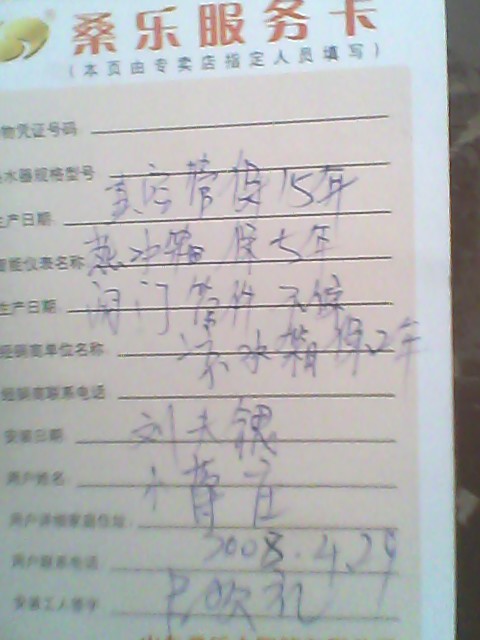 桑乐服务卡
(本页由专卖店指定人员填写)
物凭证号码
水器规格型号
真空管保15年
生产日期
热水箱保5年
智能仪表名称
阀门管件不保
生产日期
冷水箱保2年
经销商单位名称
经销商联系电话
安装日期
刘夫银
用户姓名
小黄庄
用户详细家庭住址:
2008.4.29
用户联系电话:
安装工人签字